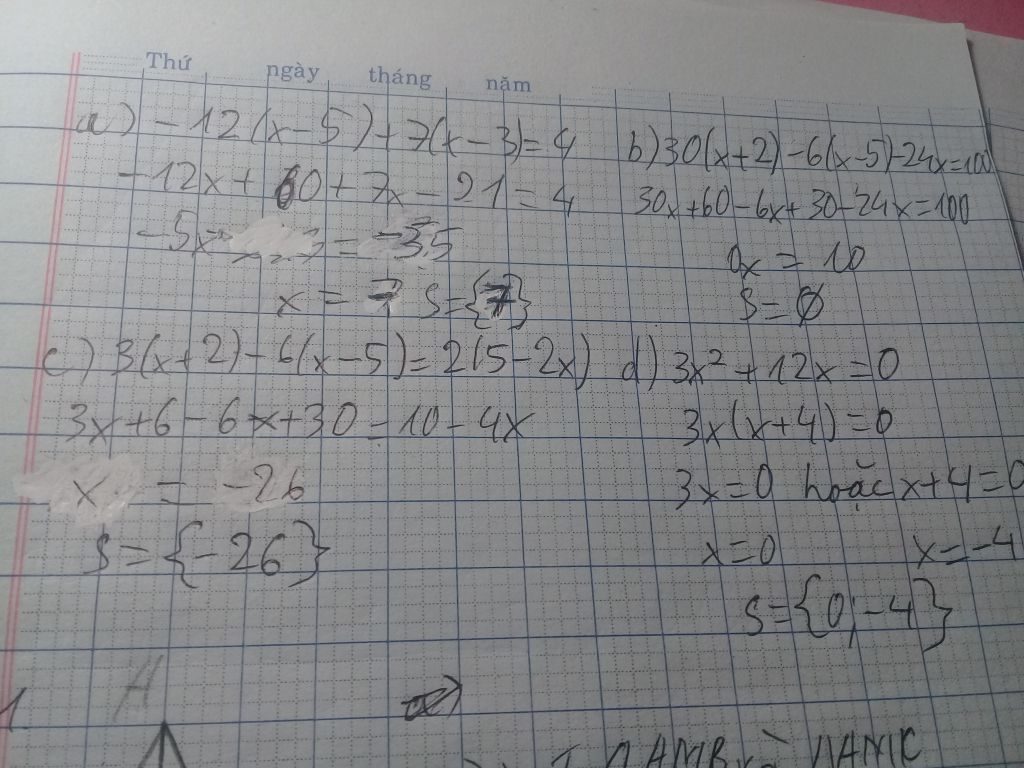 Thứ ngày tháng năm
a) -12(x-5)+7(x-3)=4
-12x+60+7x-21=4
-5x = -35
x = 7 S={7}
b) 30(x+2)-6(x-5)-24x=100
30x+60-6x+30-24x=100
0x = 10
S=∅
c) 3(x+2)-6(x-5)=2(5-2x)
3x+6-6x+30=10-4x
x = -26
S={-26}
d) 3x²+12x=0
3x(x+4)=0
3x=0 hoặc x+4=0
x=0 x=-4
S={0;-4}
A